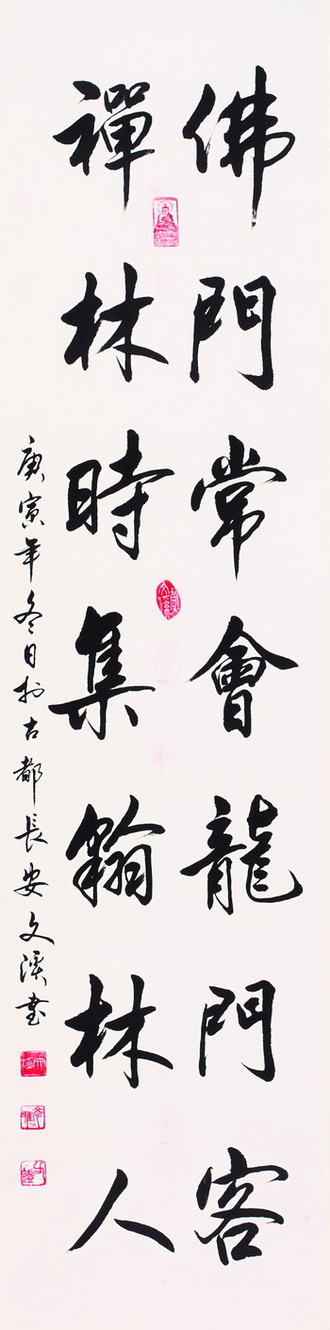 佛門常會龍門客
禪林時集翰林人
庚寅年冬日於古都長安文溪書